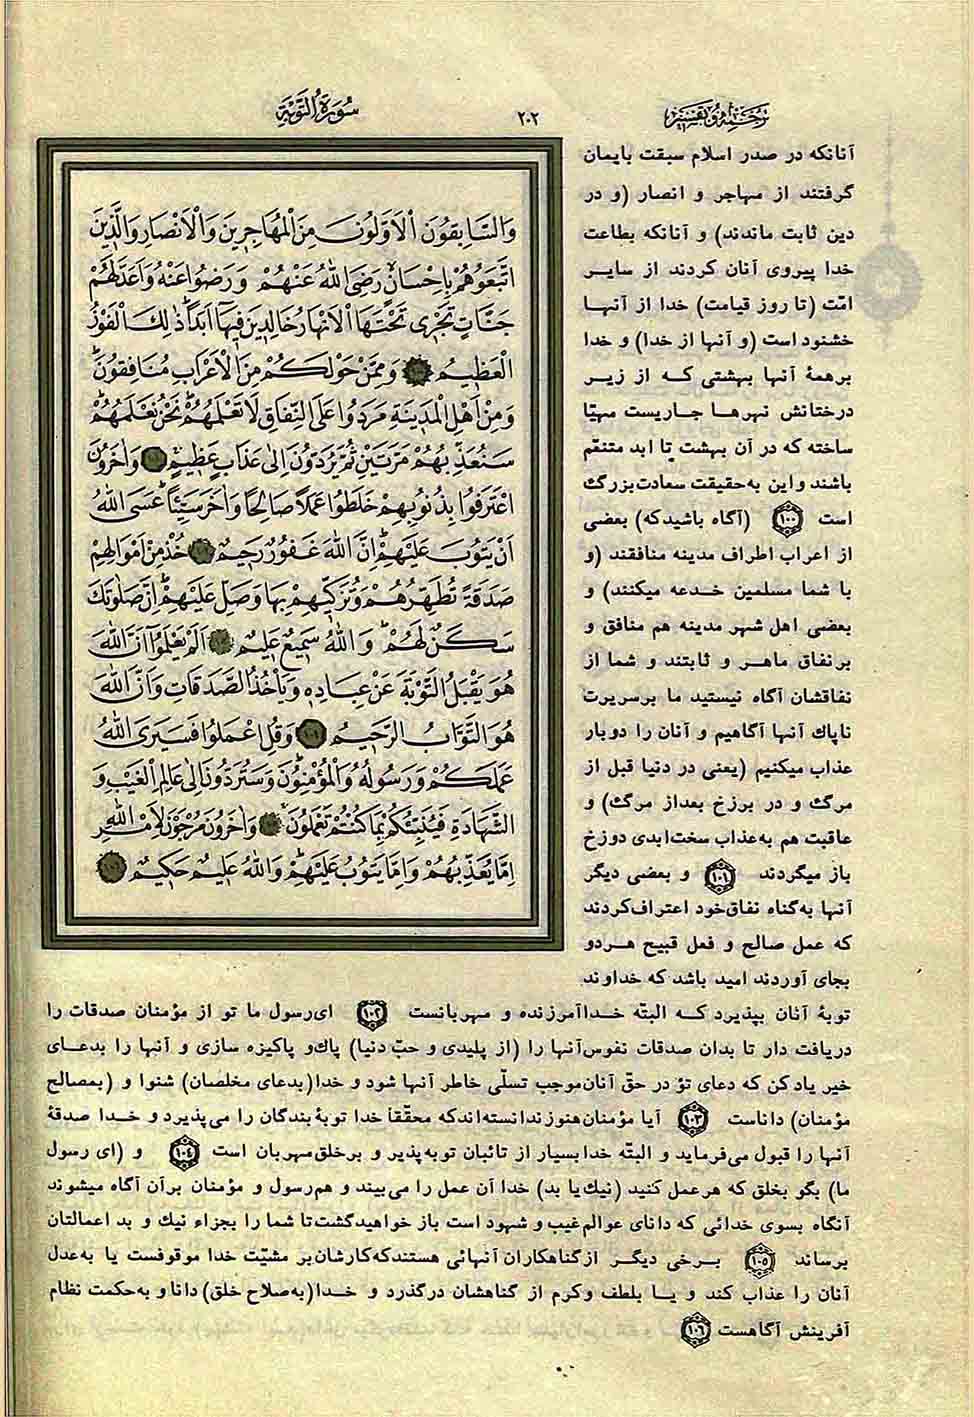 ترجمه و تفسیر
۲۰۲
سُورَةُ التَّوْبَةِ
وَالسَّابِقُونَ الْاَوَّلُونَ مِنَ الْمُهَاجِرِینَ وَالْاَنْصَارِ وَالَّذِینَ
اتَّبَعُوهُمْ بِاِحْسَانٍ رَضِیَ اللهُ عَنْهُمْ وَ رَضُوا عَنْهُ وَاَعَدَّ لَهُمْ
جَنَّاتٍ تَجْرِی تَحْتَهَا الْاَنْهَارُ خَالِدِینَ فِیهَا اَبَدًا ذٰلِكَ الْفَوْزُ
الْعَظِیمُ ۱۰۰ وَ مِمَّنْ حَوْلَكُمْ مِنَ الْاَعْرَابِ مُنَافِقُونَ
وَ مِنْ اَهْلِ الْمَدِینَةِ مَرَدُوا عَلَی النِّفَاقِ لَا تَعْلَمُهُمْ نَحْنُ نَعْلَمُهُمْ
سَنُعَذِّبُهُمْ مَرَّتَیْنِ ثُمَّ یُرَدُّونَ اِلٰی عَذَابٍ عَظِیمٍ ۱۰۱ وَاٰخَرُونَ
اعْتَرَفُوا بِذُنُوبِهِمْ خَلَطُوا عَمَلًا صَالِحًا وَاٰخَرَ سَیِّئًا عَسَی اللهُ
اَنْ یَتُوبَ عَلَیْهِمْ اِنَّ اللهَ غَفُورٌ رَحِیمٌ ۱۰۲ خُذْ مِنْ اَمْوَالِهِمْ
صَدَقَةً تُطَهِّرُهُمْ وَ تُزَكِّیهِمْ بِهَا وَصَلِّ عَلَیْهِمْ اِنَّ صَلٰوتَكَ
سَكَنٌ لَهُمْ وَ اللهُ سَمِیعٌ عَلِیمٌ ۱۰۳ اَلَمْ یَعْلَمُوا اَنَّ اللهَ
هُوَ یَقْبَلُ التَّوْبَةَ عَنْ عِبَادِهِ وَ یَأْخُذُ الصَّدَقَاتِ وَ اَنَّ اللهَ
هُوَ التَّوَّابُ الرَّحِیمُ ۱۰۴ وَ قُلِ اعْمَلُوا فَسَیَرَی اللهُ
عَمَلَكُمْ وَ رَسُولُهُ وَ الْمُؤْمِنُونَ وَ سَتُرَدُّونَ اِلٰی عَالِمِ الْغَیْبِ وَ
الشَّهَادَةِ فَیُنَبِّئُكُمْ بِمَا كُنْتُمْ تَعْمَلُونَ ۱۰۵ وَ اٰخَرُونَ مُرْجَوْنَ لِاَمْرِ اللهِ
اِمَّا یُعَذِّبُهُمْ وَ اِمَّا یَتُوبُ عَلَیْهِمْ وَاللهُ عَلِیمٌ حَكِیمٌ ۱۰۶
آنانکه در صدر اسلام سبقت بایمان
گرفتند از مهاجر و انصار (و در
دین ثابت ماندند) و آنانکه بطاعت
خدا پیروی آنان کردند از سایر
امّت (تا روز قیامت) خدا از آنها
خشنود است (و آنها از خدا) و خدا
برهمۀ آنها بهشتی که از زیر
درختانش نهرها جاریست مهیّا
ساخته که در آن بهشت تا ابد متنعّم
باشند و این به‌حقیقت سعادت بزرگ
است ۱۰۰ (آگاه باشیدکه) بعضی
از اعراب اطراف مدینه منافقند (و
با شما مسلمین خدعه میکنند) و
بعضی اهل شهر مدینه هم منافق و
برنفاق ماهر و ثابتند و شما از
نفاقشان آگاه نیستید ما برسریرت
ناپاك آنها آگاهیم و آنان را دوبار
عذاب میکنیم (یعنی در دنیا قبل از
مرگ و در برزخ بعداز مرگ) و
عاقبت هم به‌عذاب سخت ابدی دوزخ
باز میگردند ۱۰۱ و بعضی دیگر
آنها به‌گناه نفاق خود اعتراف کردند
که عمل صالح و فعل قبیح هردو
بجای آوردند امید باشد که خداوند
توبۀ آنان بپذیرد که البتّه خدا آمرزنده و مهربانست ۱۰۲ ای رسول ما تو از مؤمنان صدقات را
دریافت دار تا بدان صدقات نفوس آنها را (از پلیدی و حبّ دنیا) پاك و پاکیزه سازی و آنها را بدعای
خیر یاد کن که دعای تو در حقّ آنان موجب تسلّی خاطر آنها شود و خدا (بدعای مخلصان) شنوا و (بمصالح
مؤمنان) داناست ۱۰۳ آیا مؤمنان هنوز ندانسته‌اند که محققاً خدا توبۀ بندگان را می‌پذیرد و خدا صدقۀ
آنها را قبول می‌فرماید و البتّه خدا بسیار از تائبان توبه‌پذیر و برخلق مهربان است ۱۰۴ و (ای رسول
ما) بگو بخلق که هر عمل کنید (نیك یا بد) خدا آن عمل را می‌بیند و هم رسول و مؤمنان برآن آگاه میشوند
آنگاه بسوی خدائی که دانای عوالم غیب و شهود است باز خواهید گشت تا شما را بجزاء نیك و بد اعمالتان
برساند ۱۰۵ برخی دیگر از گناهکاران آنهائی هستند که کارشان بر مشیّت خدا موقوفست یا به‌عدل
آنان را عذاب کند و یا بلطف و کرم از گناهشان درگذرد و خدا (به‌صلاح خلق) دانا و به‌حکمت نظام
آفرینش آگاهست ۱۰۶